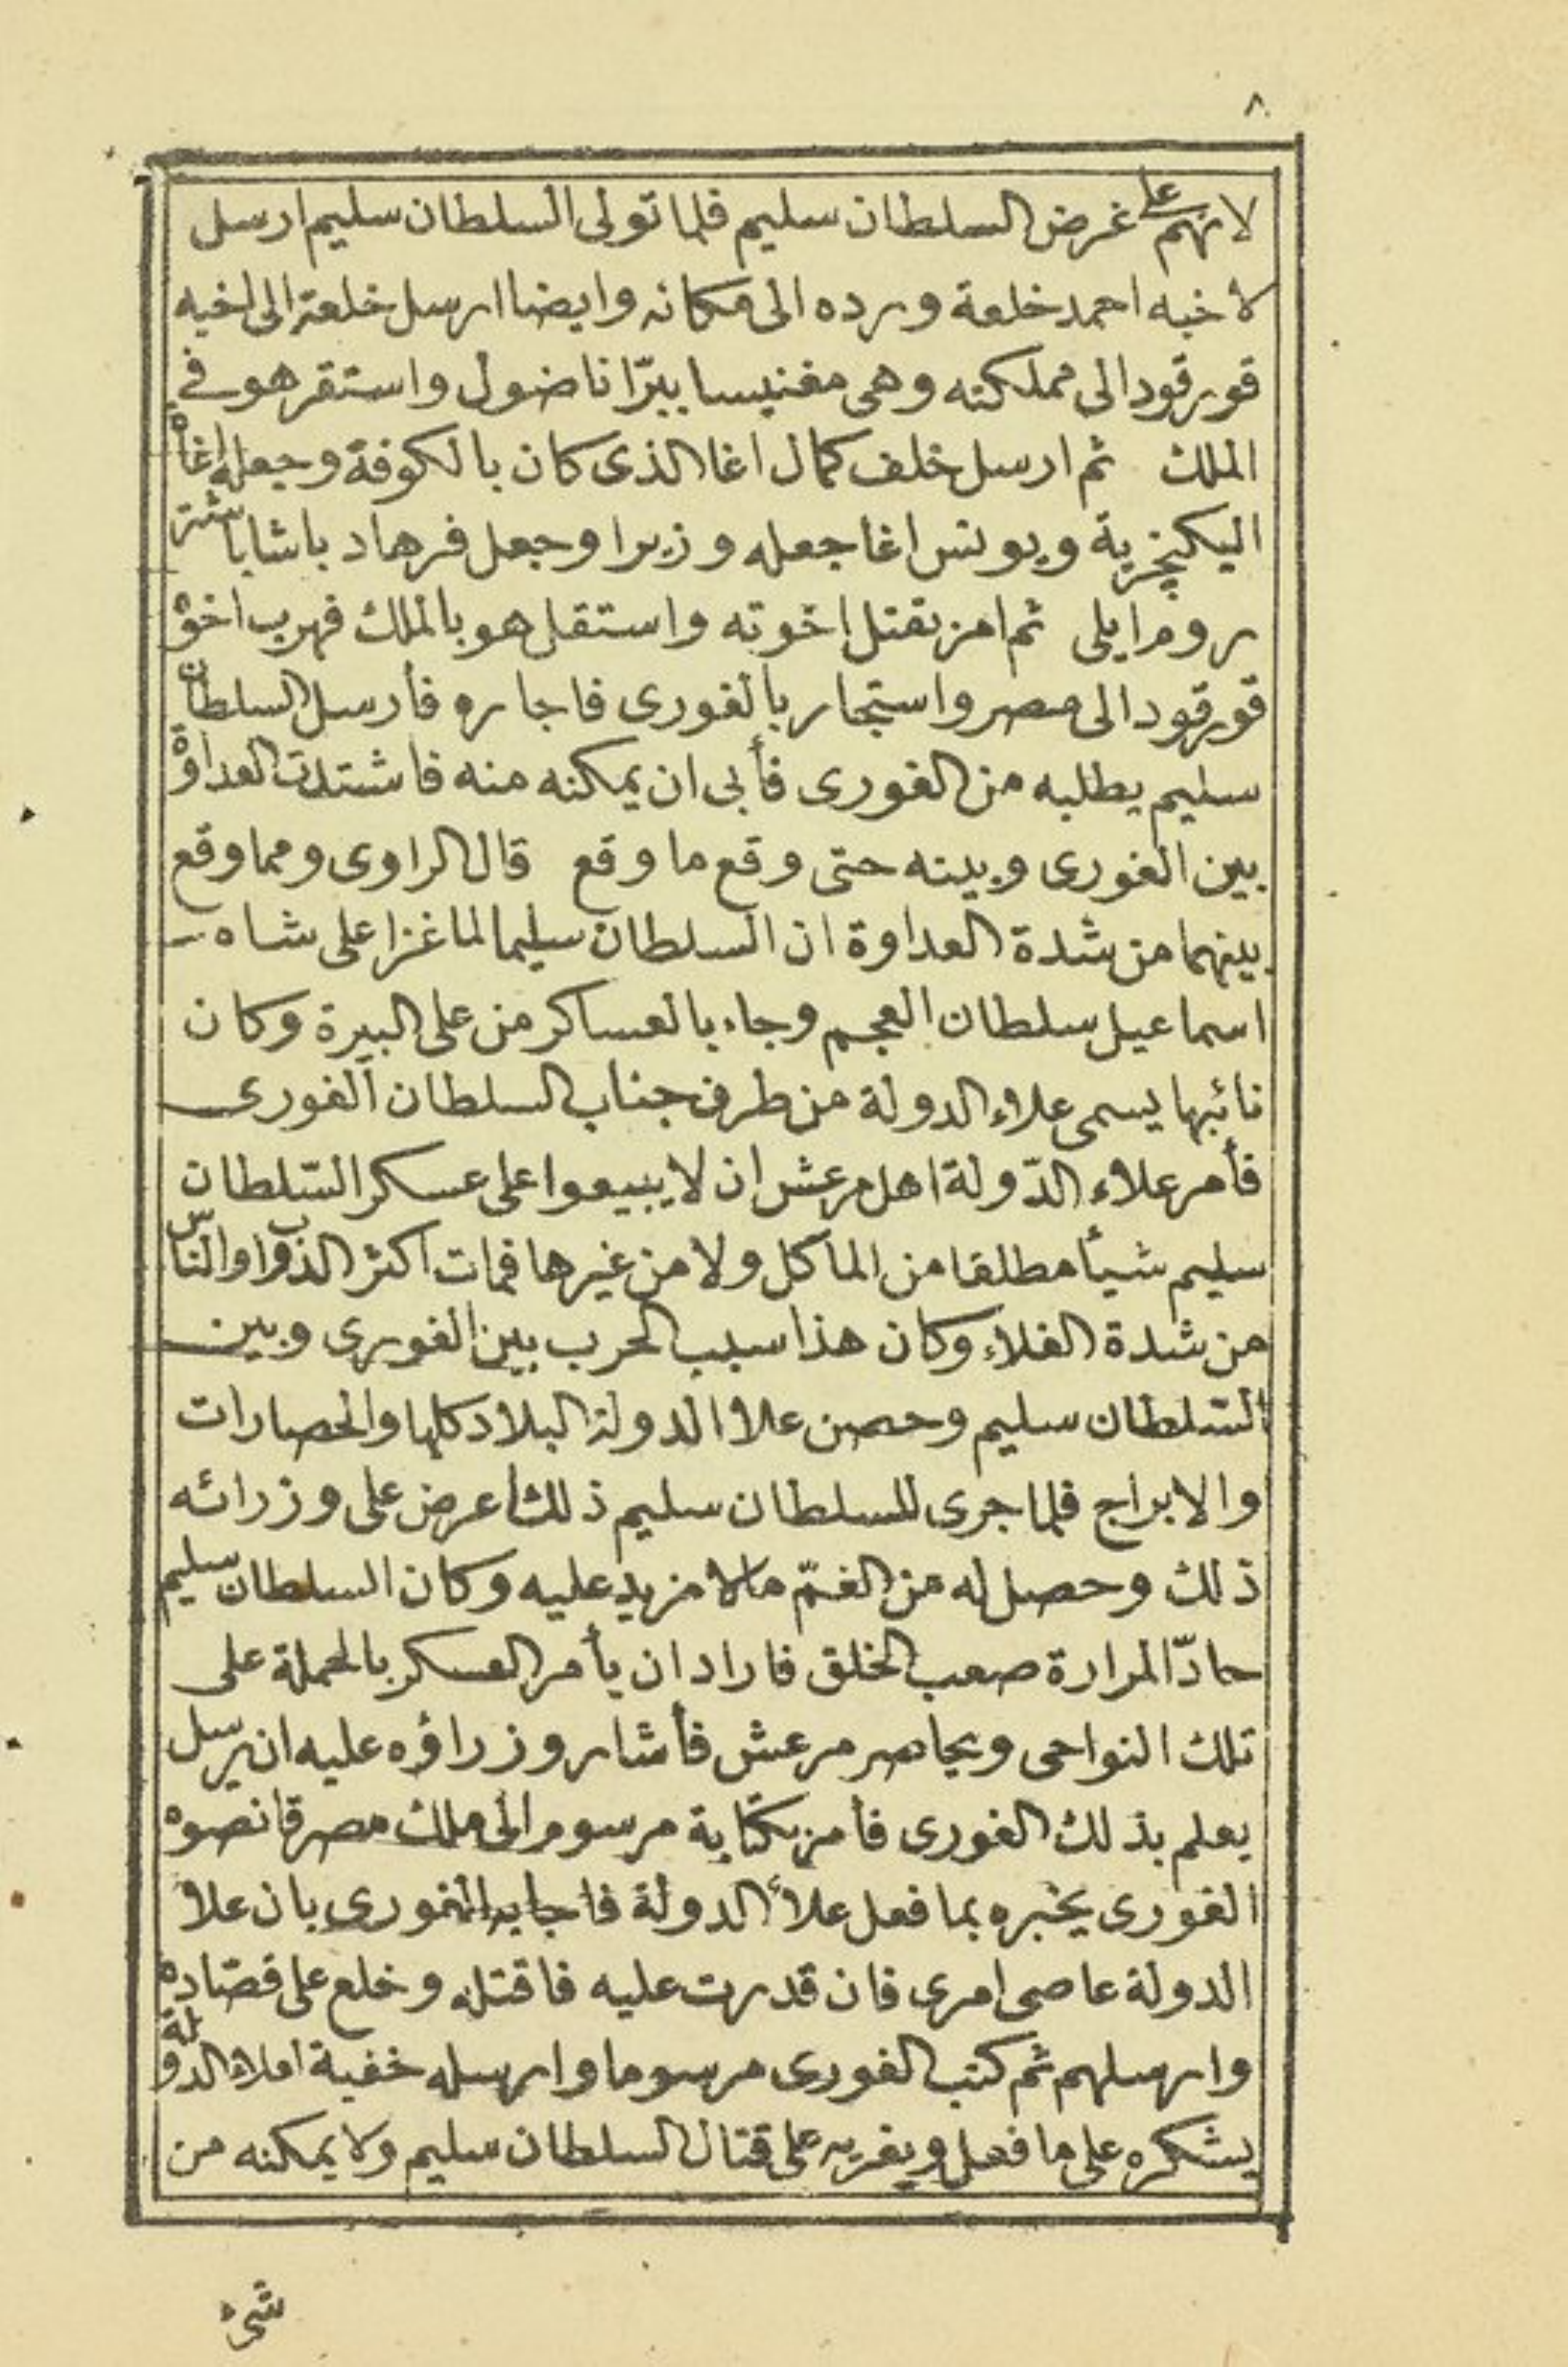 ٨
لانهم على غرض السلطان سليم فلما تولى السلطان سليم ارسل
لاخيه احمد خلعة ورده الى مكانه وايضا ارسل خلعة الى اخيه
قورقود الى مملكته وهى مغنيسا ببرّ اناضول واستقر هو في
الملك ثم ارسل خلف كمال اغا الذى كان بالكوفة وجعله اغاة
اليكنچرية ويونس اغا جعله وزيرا وجعل فرهاد باشا باشة
روم ايلى ثم امر بقتل اخوته واستقل هو بالملك فهرب اخوه
قورقود الى مصر واستجار بالغورى فاجاره فأرسل السلطان
سليم يطلبه من الغورى فأبى ان يمكنه منه فاشتدت العداوة
بين الغورى وبينه حتى وقع ما وقع قال الراوى ومما وقع
بينهما من شدة العداوة ان السلطان سليما لما غزا على شاه
اسماعيل سلطان العجم وجاء بالعساكر من على البيرة وكان
نائبها يسمى علاء الدولة من طرف جناب السلطان الغورى
فأمر علاء الدّولة اهل مرعش ان لا يبيعوا على عسكر السّلطان
سليم شيأ مطلقا من المآكل ولا من غيرها فمات اكثر الدواب والناس
من شدة الغلاء وكان هذا سبب الحرب بين الغورى وبين
السّلطان سليم وحصن علاء الدولة البلاد كلها والحصارات
والابراج فلما جرى للسلطان سليم ذلك أعرض على وزرائه
ذلك وحصل له من الغمّ مالا مزيد عليه وكان السلطان سليم
حادّ المرارة صعب الخلق فاراد ان يأمر العسكر بالحملة على
تلك النواحى ويحاصر مرعش فأشار وزراؤه عليه ان يرسل
يعلم بذلك الغورى فأمر بكتابة مرسوم الى ملك مصر قانصوه
الغورى يخبره بما فعل علاء الدولة فاجابه الغورى بان علاء
الدولة عاصى امرى فان قدرت عليه فاقتله وخلع على قصّاده
وارسلهم ثم كتب الغورى مرسوما وارسله خفية لعلاء الدولة
يشكره على ما فعل ويغريه على قتال السلطان سليم ولا يمكنه من
شئ